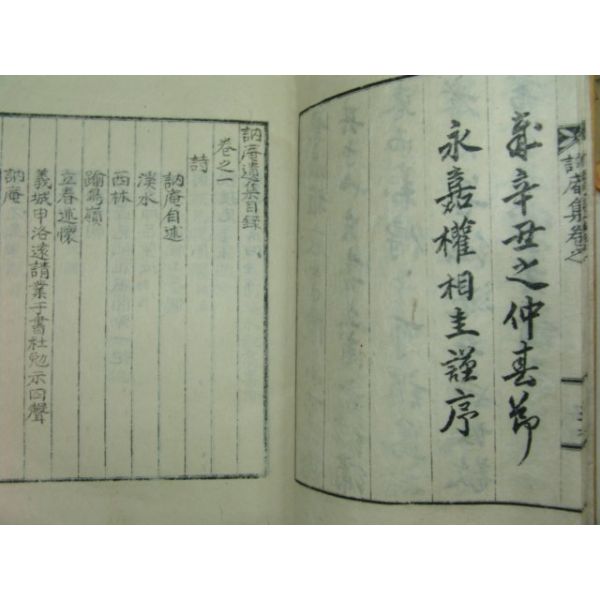 訥庵集卷之
歲辛丑之仲春節
永嘉權相圭謹序
訥庵遺集目録
卷之一
詩
訥庵自述
溪水
西林
踰鳥嶺
立春述懷
義城甲洛遠請業于書社勉示四聲
訥庵